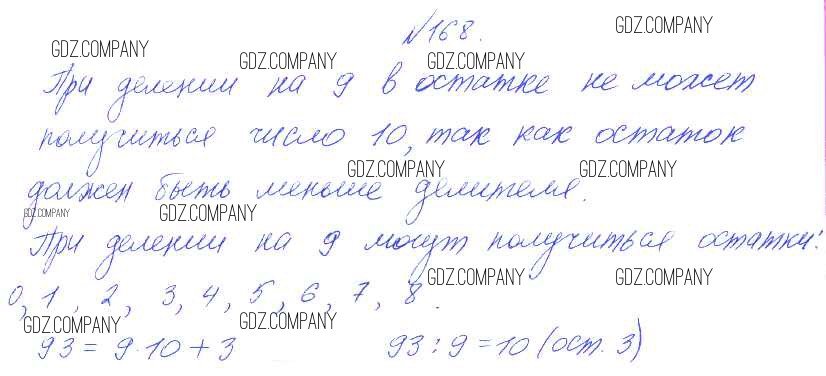 №168.
GDZ.COMPANY GDZ.COMPANY GDZ.COMPANY GDZ.COMPANY
При делении на 9 в остатке не может
получиться число 10, так как остаток
GDZ.COMPANY GDZ.COMPANY
должен быть меньше делителя.
GDZ.COMPANY GDZ.COMPANY
При делении на 9 могут получиться остатки:
GDZ.COMPANY GDZ.COMPANY
0, 1, 2, 3, 4, 5, 6, 7, 8.
GDZ.COMPANY GDZ.COMPANY
93 = 9·10 + 3 93 : 9 = 10 (ост. 3)